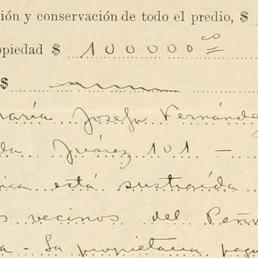 ión y conservación de todo el predio, $
opiedad $ 100000 00
$
aría Josefa Fernánde
da Juárez 101 -
ica está sustraída
s vecinos del Peñ
a - La propietaria paga